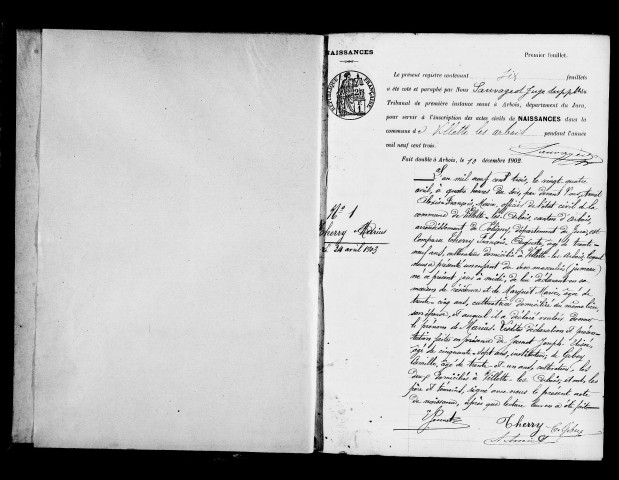 NAISSANCES
Premier feuillet.
RÉPUBLIQUE FRANÇAISE
Le présent registre contenant six feuillets
a été coté et paraphé par Nous Sauvageot Juge suppléant
Tribunal de première instance séant à Arbois, département du Jura,
pour servir à l'inscription des actes civils de NAISSANCES dans la
commune de Villette les arbois pendant l'année
mil neuf cent trois.
Fait double à Arbois, le 10 décembre 1902.
Sauvageot
L'an mil neuf cent trois, le vingt quatre
avril, à quatre heures du soir, par devant Nous,
François, Maire, officier de l'état civil de la
commune de Villette-les-Arbois, canton d'Arbois,
arrondissement de Poligny, département du Jura, est
comparu Therry François, âgé de trente-
neuf ans, cultivateur domicilié à Villette-les-Arbois, lequel
nous a présenté un enfant de sexe masculin (jumeau)
né ce présent jour à midi, de lui déclarant en
sa maison de résidence et de Marguet Marie, âgée de
trente-cinq ans, cultivatrice domiciliée au même lieu,
son épouse, et auquel il a déclaré vouloir donner
le prénom de Marius. Lesdites déclaration et présen-
tation faites en présence de Jeunet Joseph
âgé de cinquante-sept ans, instituteur, et
Camille, âgé de trente-et-un ans, cultivateur, les
deux domiciliés à Villette-les-Arbois, et ont, les
père et témoins, signé avec nous le présent acte
de naissance, après que lecture leur en a été faite.
N° 1
Therry Marius
24 avril 1903
Jeunet
Therry